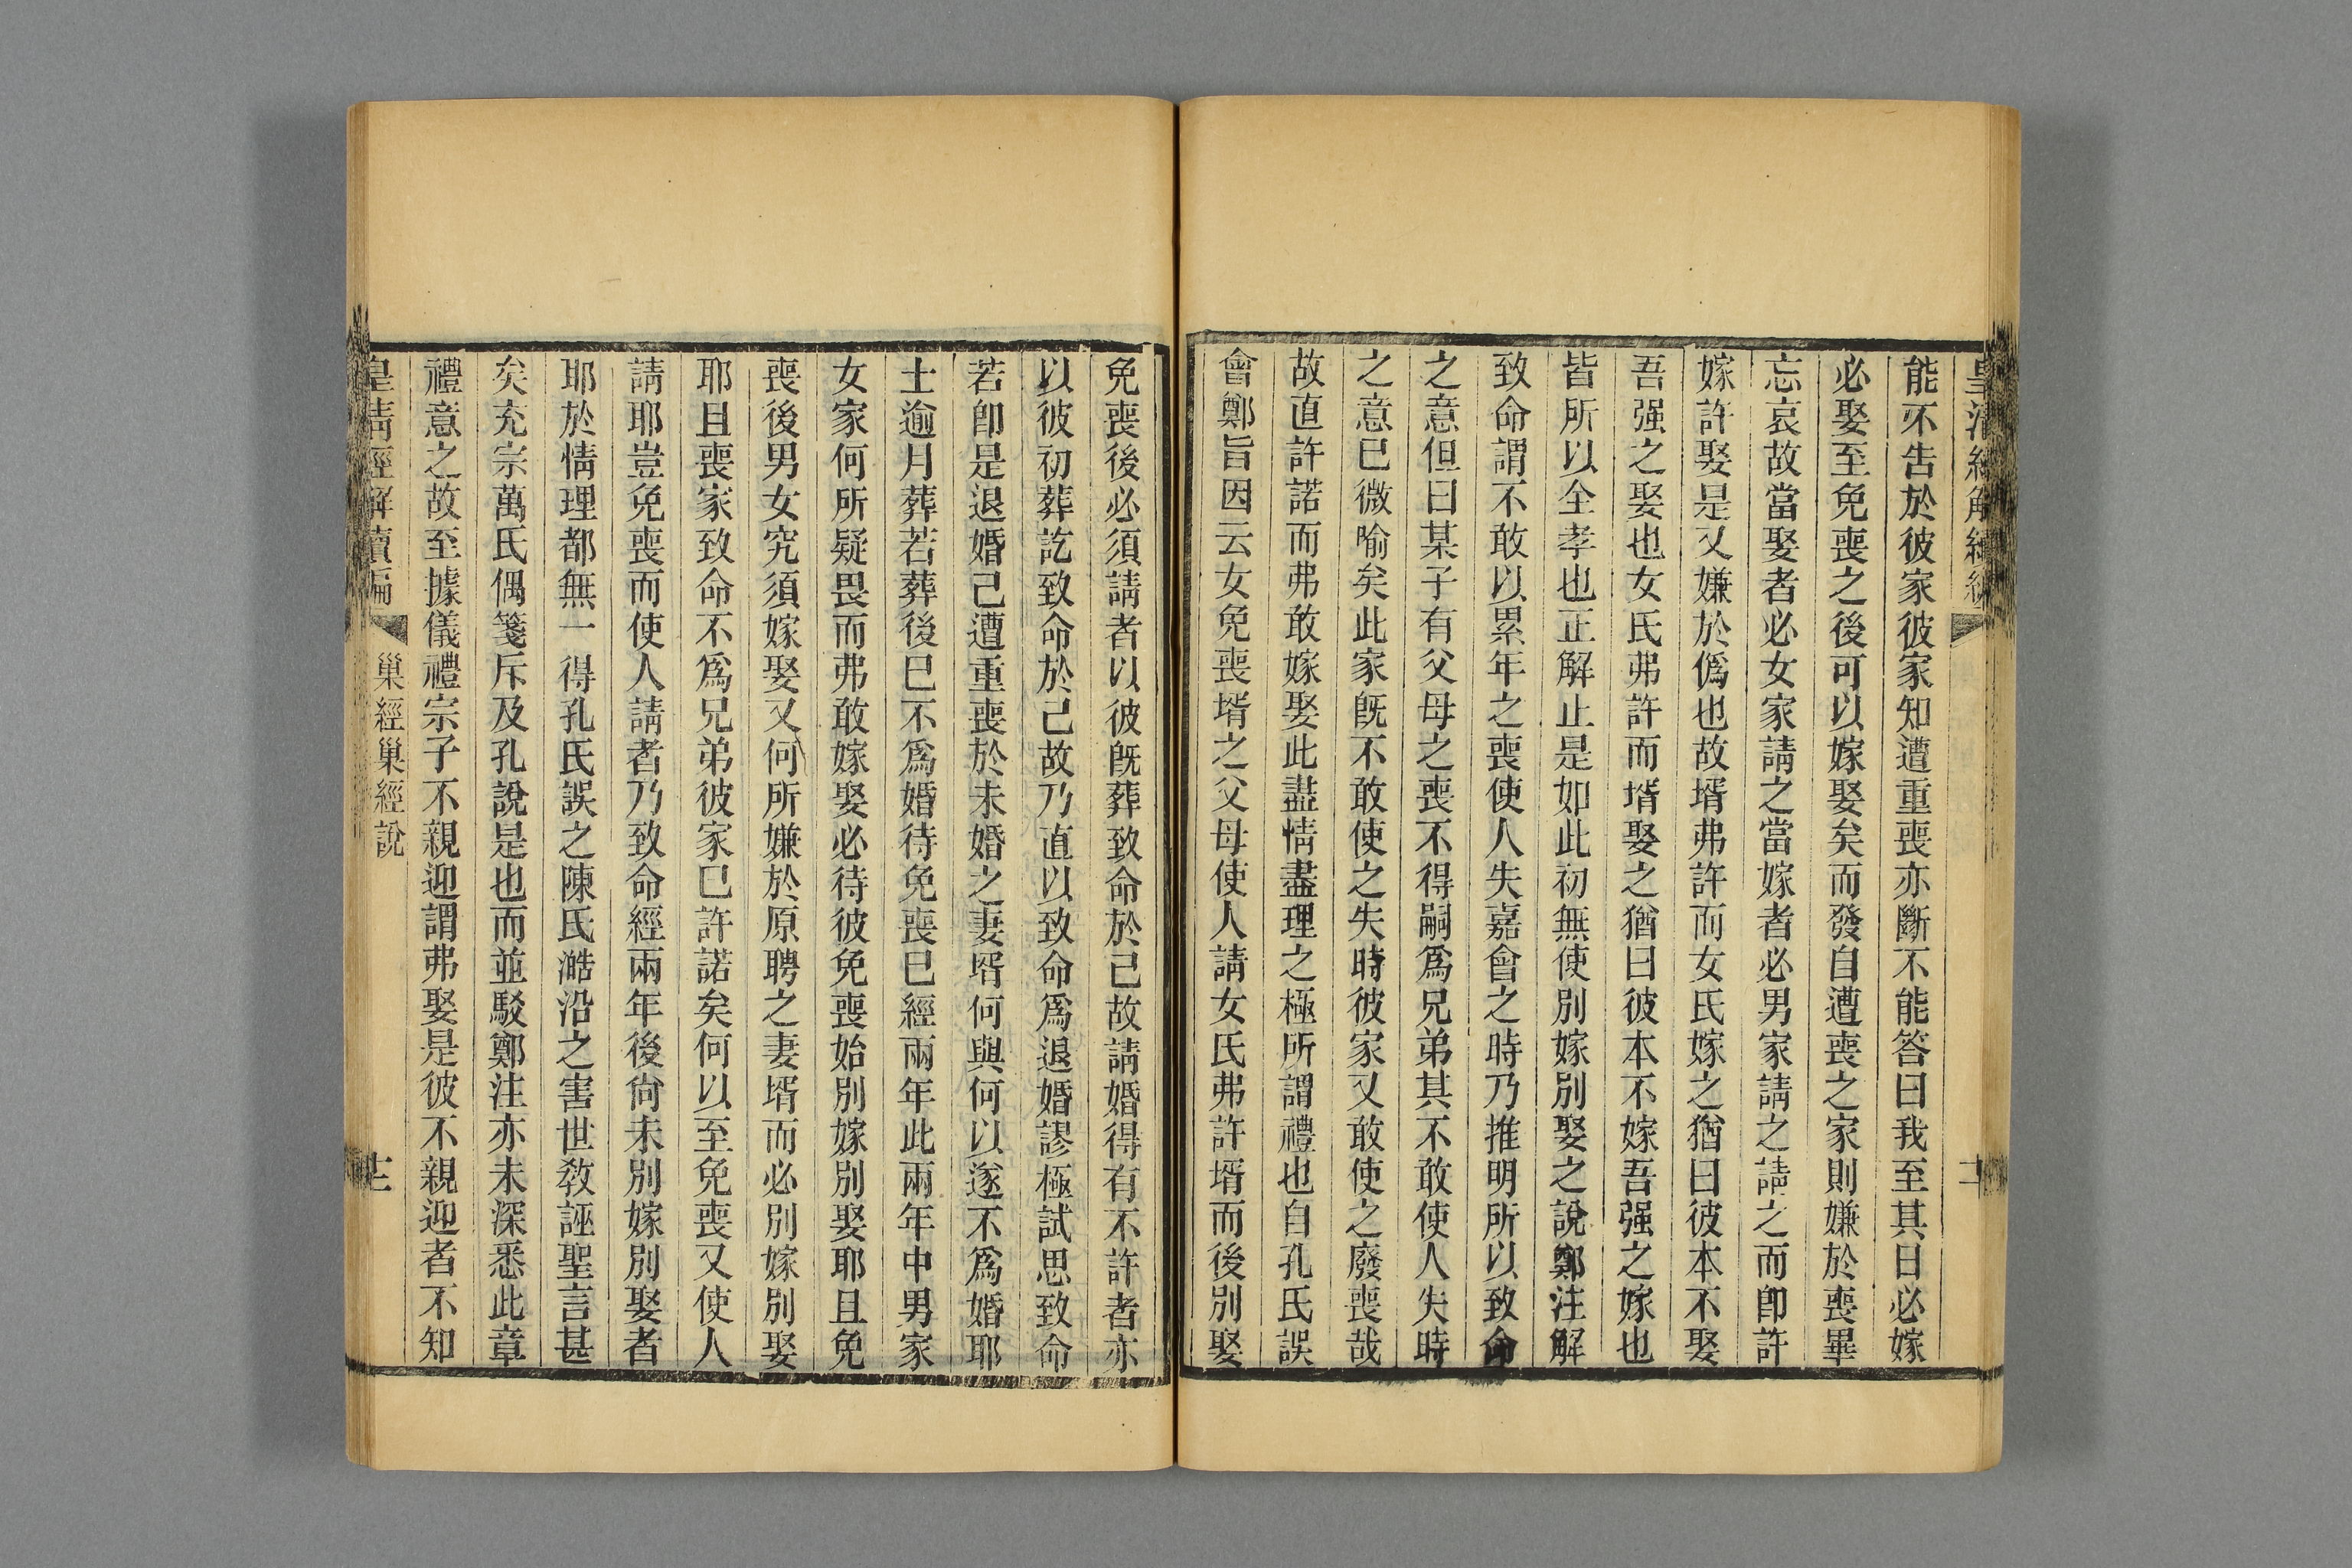 皇清經解續編
能不告於彼家彼家知遭重喪亦斷不能答曰我至其日必嫁
必娶至免喪之後可以嫁娶矣而發自遭喪之家則嫌於喪畢
忘哀故當娶者必女家請之當嫁者必男家請之請之而卽許
嫁許娶是又嫌於僞也故壻弗許而女氏嫁之猶曰彼本不娶
吾强之娶也女氏弗許而壻娶之猶曰彼本不嫁吾强之嫁也
皆所以全孝也正解止是如此初無使別嫁別娶之說鄭注解
致命謂不敢以累年之喪使人失嘉會之時乃推明所以致命
之意但曰某子有父母之喪不得嗣爲兄弟其不敢使人失時
之意已微喻矣此家旣不敢使之失時彼家又敢使之廢喪哉
故直許諾而弗敢嫁娶此盡情盡理之極所謂禮也自孔氏誤
會鄭旨因云女免喪壻之父母使人請女氏弗許壻而後別娶
免喪後必須請者以彼旣葬致命於己故請婚得有不許者亦
以彼初葬訖致命於己故乃直以致命爲退婚謬極試思致命
若卽是退婚己遭重喪於未婚之妻壻何與何以遂不爲婚耶
士逾月葬若葬後已不爲婚待免喪已經兩年此兩年中男家
女家何所疑畏而弗敢嫁娶必待彼免喪始別嫁別娶耶且免
喪後男女究須嫁娶又何所嫌於原聘之妻壻而必別嫁別娶
耶且喪家致命不爲兄弟彼家已許諾矣何以至免喪又使人
請耶豈免喪而使人請者乃致命經兩年後尙未別嫁別娶者
耶於情理都無一得孔氏誤之陳氏澔沿之害世教誣聖言甚
矣充宗萬氏偶箋斥及孔說是也而並駁鄭注亦未深悉此章
禮意之故至據儀禮宗子不親迎謂弗娶是彼不親迎者不知
皇清經解續編
巢經巢經說